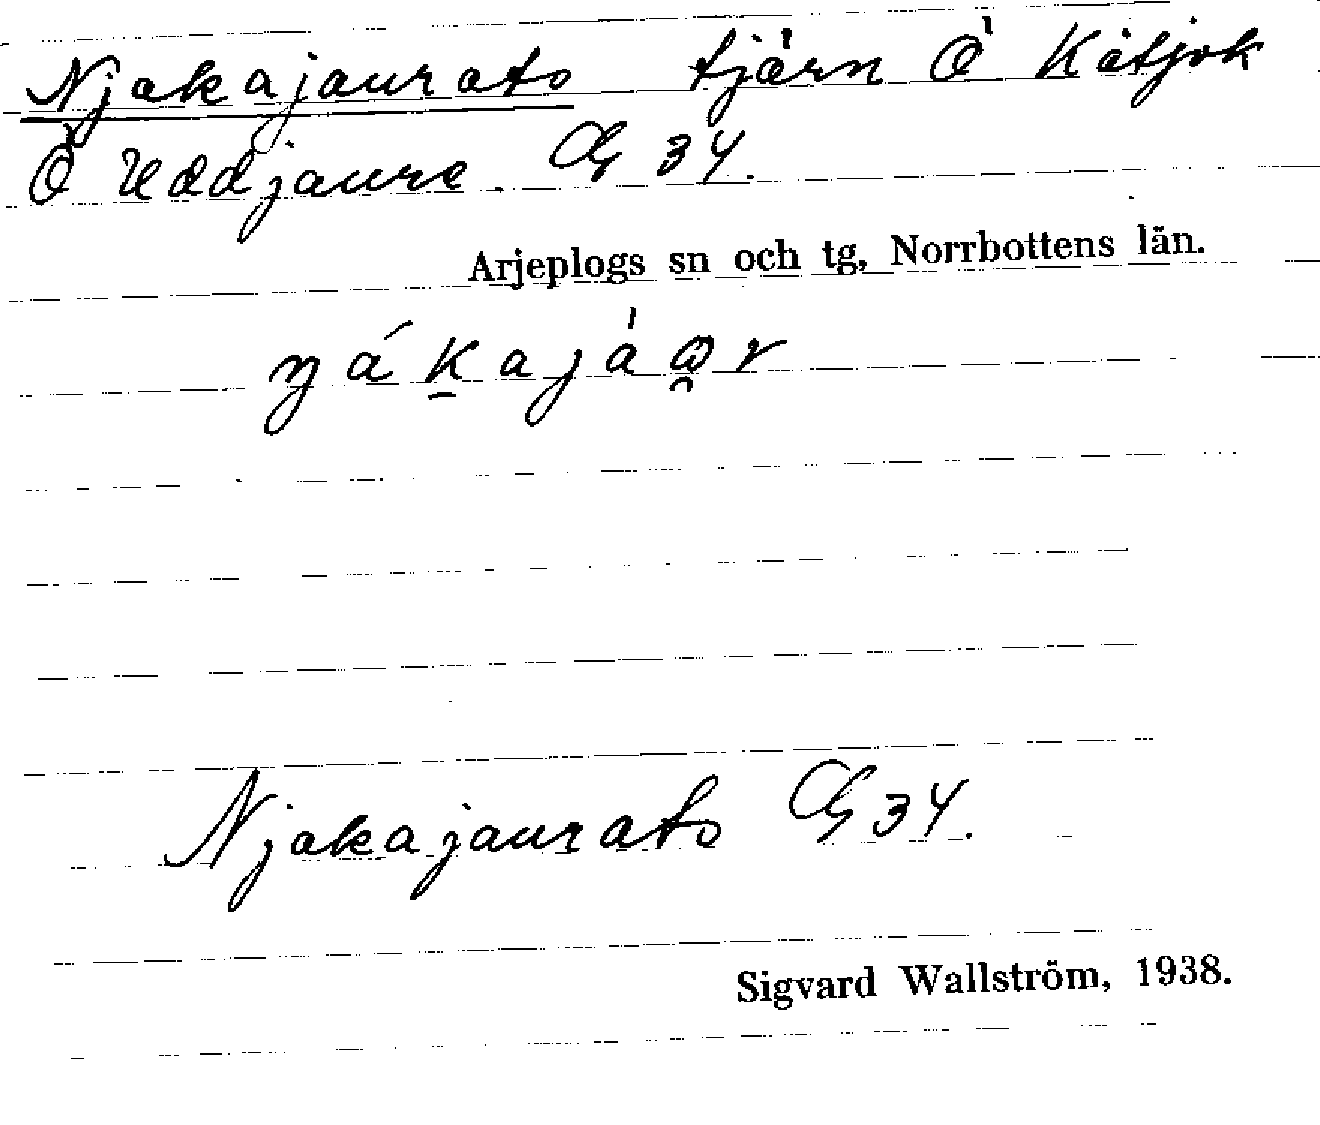 Njakajaurats tjärn Ö Kåtjok
Ö Uddjaure. CG 34.
Arjeplogs sn och tg, Norrbottens län.
Njakajaurats CG 34.
Sigvard Wallström, 1938.